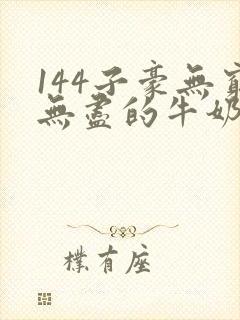 144子豪無窮
無盡的牛奶
樸有座